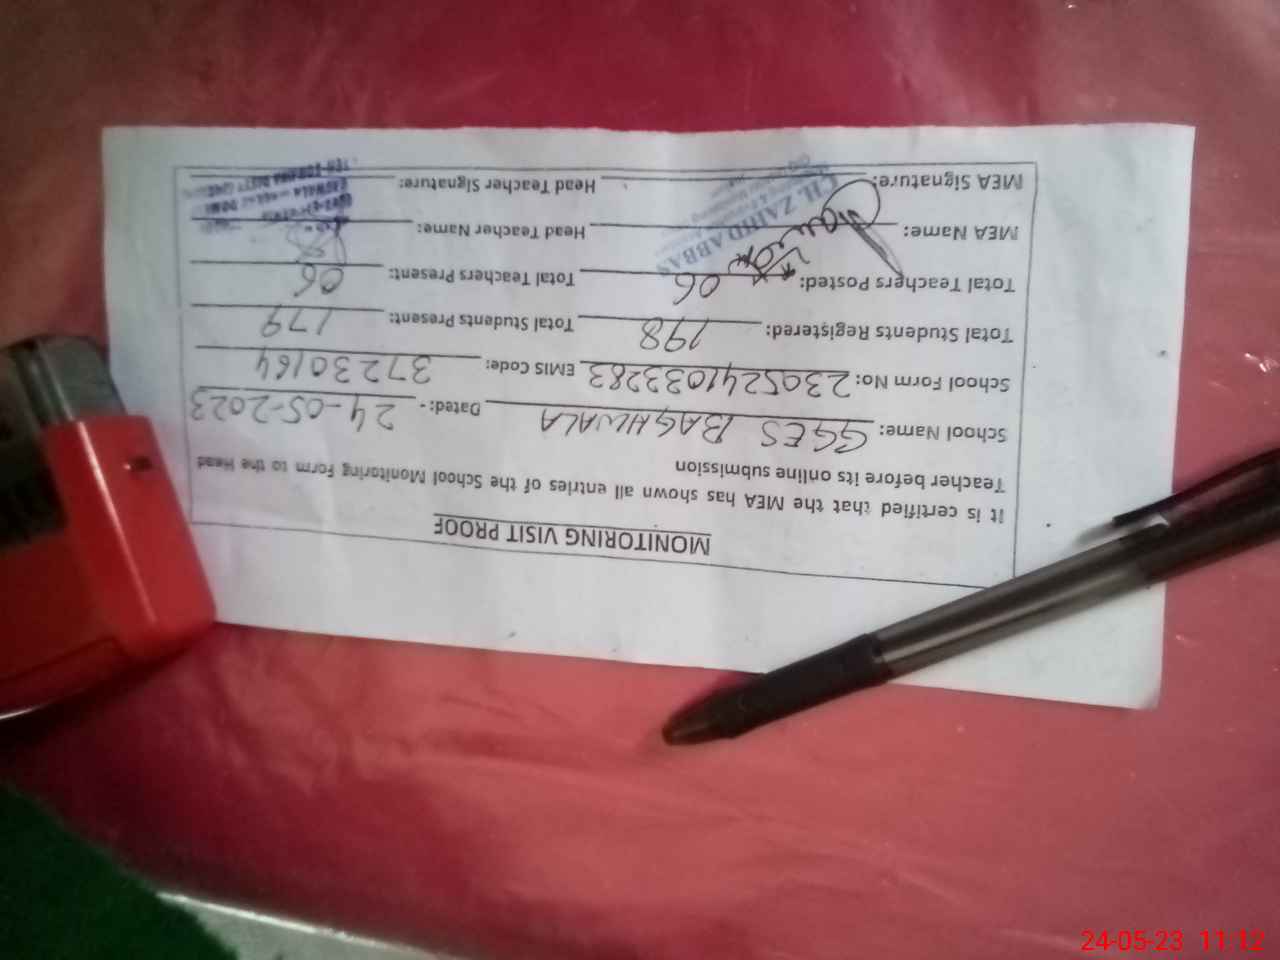 MONITORING VISIT PROOF
It is certified that the MEA has shown all entries of the School Monitoring Form to the Head
Teacher before its online submission
School Name: GGES BAGHWALA Dated:- 24-05-2023
School Form No: 2305241033283 EMIS Code: 37230164
Total Students Registered: 198 Total Students Present: 179
Total Teachers Posted: 06 Total Teachers Present: 06
MEA Name: Head Teacher Name:
MEA Signature: Head Teacher Signature:
CH. ZAHID ABBAS
24-05-23 11:12